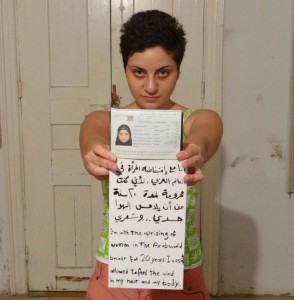 أنا مع إنتفاضة المرأة في
العالم العربي، لأني كنت
محرومة لمدة ٢٠ سنة
من أن يلامس الهوا
جسدي.. وشعري
I'm with the uprising of
women in The Arab world
because for 20 years I wasn't
allowed to feel the wind
in my hair and my body.